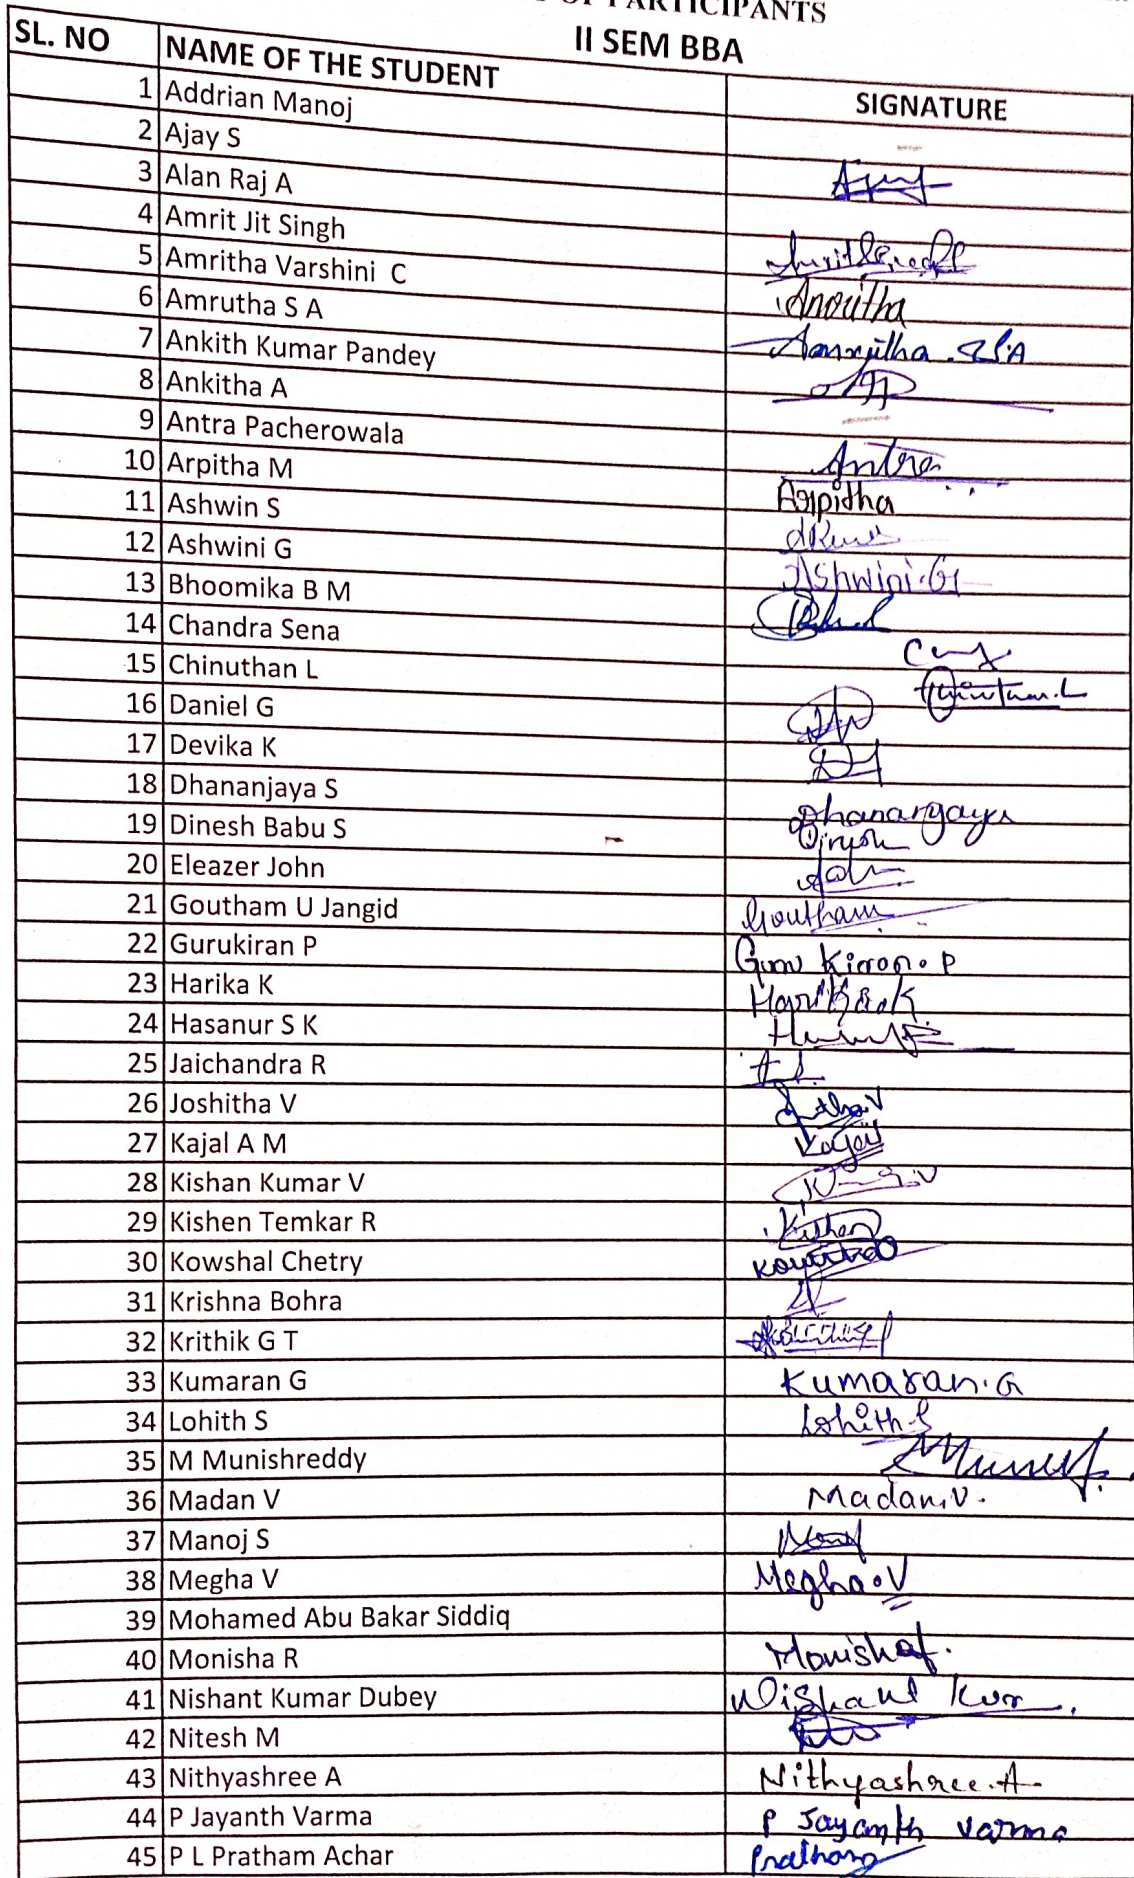 OF PARTICIPANTS
II SEM BBA
SL. NO NAME OF THE STUDENT SIGNATURE
1 Addrian Manoj
2 Ajay S Ajay
3 Alan Raj A
4 Amrit Jit Singh
5 Amritha Varshini C Amritha
6 Amrutha S A Amrutha.S.A
7 Ankith Kumar Pandey
8 Ankitha A
9 Antra Pacherowala Antra
10 Arpitha M Arpitha
11 Ashwin S
12 Ashwini G Ashwini.G
13 Bhoomika B M
14 Chandra Sena
15 Chinuthan L
16 Daniel G
17 Devika K
18 Dhananjaya S Dhananjaya
19 Dinesh Babu S Dinesh
20 Eleazer John
21 Goutham U Jangid Goutham
22 Gurukiran P Guru Kiran.P
23 Harika K Harika.K
24 Hasanur S K
25 Jaichandra R
26 Joshitha V
27 Kajal A M Kajal
28 Kishan Kumar V
29 Kishen Temkar R Kishen
30 Kowshal Chetry
31 Krishna Bohra
32 Krithik G T
33 Kumaran G Kumaran.G
34 Lohith S Lohith.S
35 M Munishreddy
36 Madan V Madan.V.
37 Manoj S
38 Megha V Megha.V
39 Mohamed Abu Bakar Siddiq
40 Monisha R Monisha
41 Nishant Kumar Dubey Nishant Kum
42 Nitesh M
43 Nithyashree A Nithyashree.A
44 P Jayanth Varma P Jayanth Varma
45 P L Pratham Achar Pratham